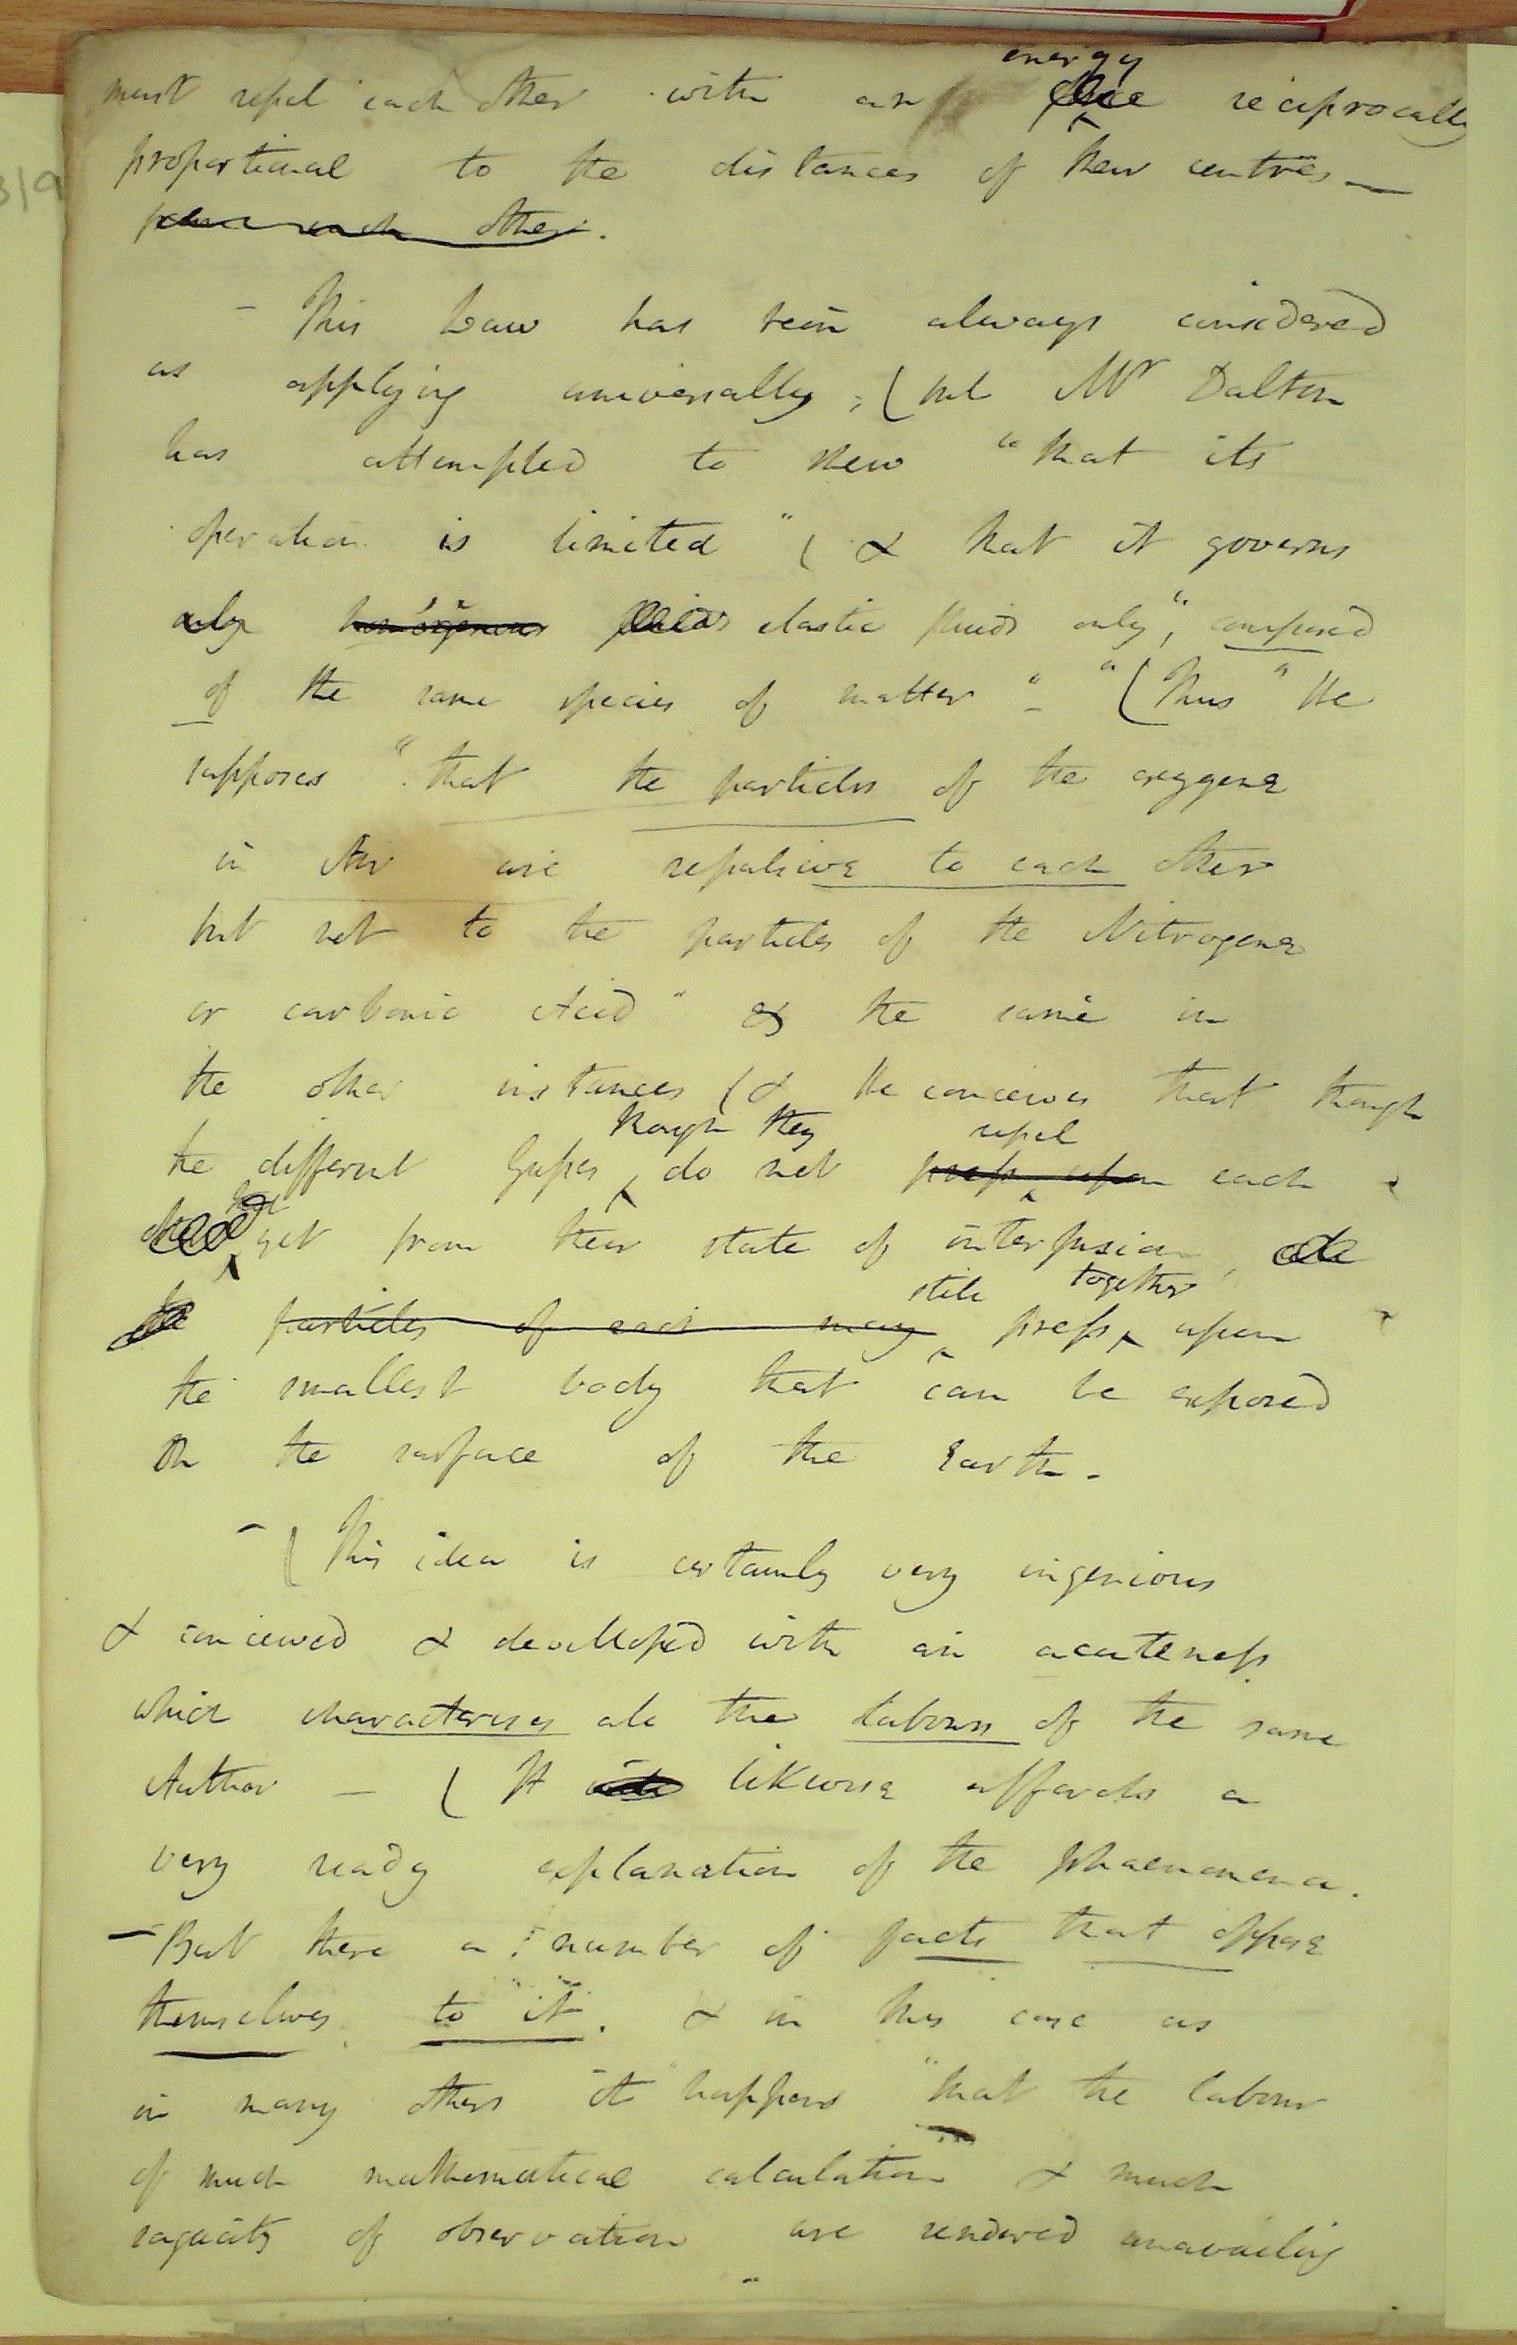 energy
must repel each other with an force reciprocally
proportional to the distances of their centres —
from each other.
— This Law has been always considered
as applying universally; (but Mr Dalton
has attempted to shew "that its
operation is limited" ( & that it governs
only homogenous fluids elastic fluids only", composed
of the same species of matter" - "( Thus" He
supposes "that the particles of the oxygene
in Air are repulsive to each other
but not to the particles of the Nitrogene
or carbonic Acid" & the same in
the other instances ( & He conceives that though
though they repel
the different Gases do not press upon each
other but yet from their state of interfusion,
still together
the particles of each may press upon
the smallest body that can be exposed
on the surface of the Earth. -
— ( This idea is certainly very ingenious
& conceived & developed with an acuteness
which characterises all the labours of the same
Author — ( It likewise affords a
very ready explanation of the phaenomena.
— But there a number of facts that oppose
themselves to it. & in this case as
in many others it happens "that the labour
of much mathematical calculation & much
sagacity of observation are rendered unavailing